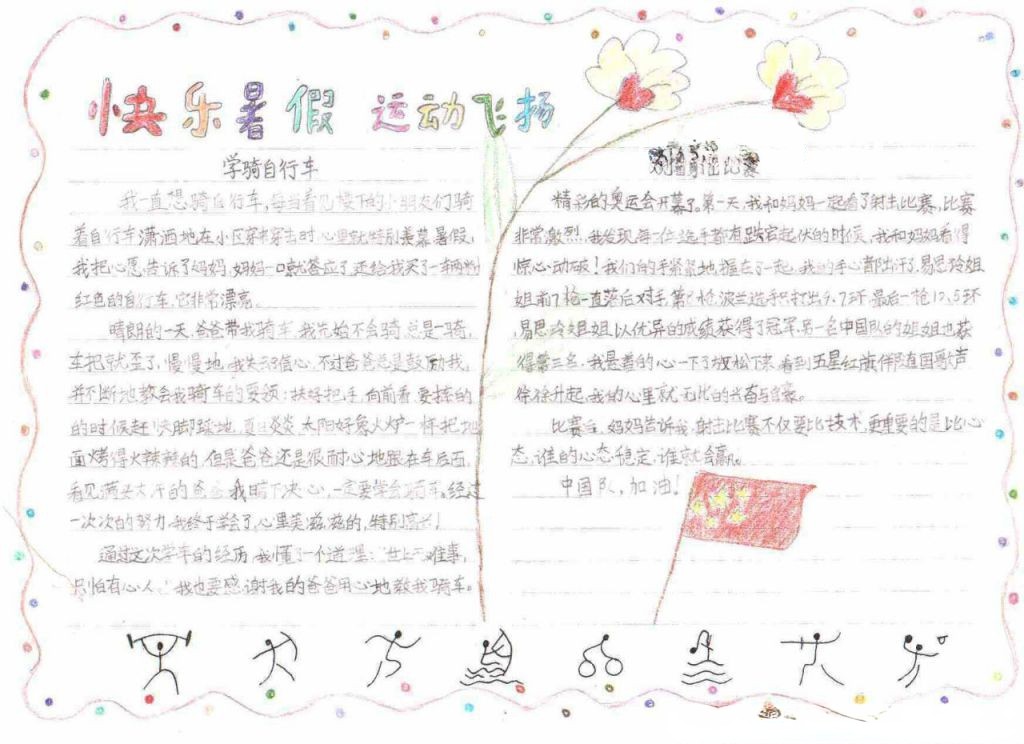 快乐暑假 运动飞扬
学骑自行车
我一直想骑自行车，每当看见楼下的小朋友们骑
着自行车潇洒地在小区穿来穿去时心里就特别羡慕暑假，
我把心愿告诉了妈妈，妈妈一口就答应了，还给我买了一辆粉
红色的自行车，它非常漂亮。
晴朗的一天，爸爸带我骑车，我先始不会骑，总是一骑，
车把就歪了，慢慢地，我失去了信心，不过爸爸总是鼓励我，
并不断地教会我骑车的要领：扶好把手，向前看，要摔的
的时候赶快脚踩地，夏日炎炎，太阳好象火炉一样把地
面烤得火辣辣的，但是爸爸还是很耐心地跟在车后面，
看见满头大汗的爸爸，我暗下决心，一定要学会骑车。经过
一次次的努力，我终于学会了，心里美滋滋的，特别高兴！
通过这次学车的经历，我懂了一个道理：“世上无难事，
只怕有心人。”我也要感谢我的爸爸用心地教我骑车。
比赛
精彩的奥运会开幕了。第一天，我和妈妈一起看了射击比赛，比赛
非常激烈，我发现，每一位选手都有跌宕起伏的时候，我和妈妈看得
惊心动破！我们的手紧紧地握在了一起，我的手心都出汗了，易思玲姐
姐前7枪一直落后对手，第 枪，波兰选手只打出9.7环，最后一枪10.5环，
易思玲姐姐以优异的成绩获得了冠军，另一名中国队的姐姐也获
得第三名，我悬着的心一下子放松下来，看到五星红旗伴随国歌声
徐徐升起，我的心里就无比的兴奋与自豪。
比赛后，妈妈告诉我，射击比赛不仅要比技术，更重要的是比心
态，谁的心态稳定，谁就会赢。
中国队，加油！